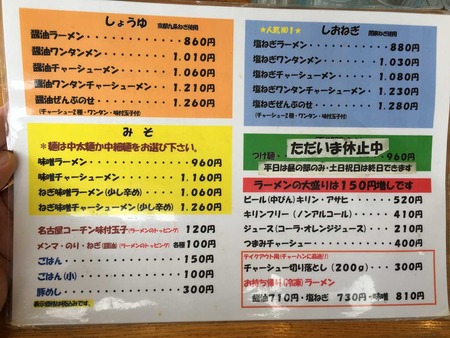 しょうゆ 京都九条ねぎ使用
醤油ラーメン・・・・・・・・860円
醤油ワンタンメン・・・・・・1.010円
醤油チャーシューメン・・・・1.060円
醤油ワンタンチャーシューメン・・1.210円
醤油ぜんぶのせ・・・・・・・1.260円
(チャーシュー2種・ワンタン・味付玉子付)
みそ
＊麺は中太麺か中細麺をお選び下さい。
味噌ラーメン・・・・・・・・960円
味噌チャーシューメン・・・・1.160円
ねぎ味噌ラーメン(少し辛め)・・1.060円
ねぎ味噌チャーシューメン(少し辛め)・・1.260円
名古屋コーチン味付玉子(ラーメンのトッピング) 120円
メンマ・のり・ねぎ(醤油)(ラーメンのトッピング)各種 100円
ごはん・・・・・・・・・・・150円
ごはん(小)・・・・・・・・・100円
豚めし・・・・・・・・・・・300円
表示価格は税込みです。
★人気NO1★ しおねぎ
塩ねぎラーメン・・・・・・・880円
塩ねぎワンタンメン・・・・・1.030円
塩ねぎチャーシューメン・・・1.080円
塩ねぎワンタンチャーシューメン・・1.230円
塩ねぎぜんぶのせ・・・・・・1.280円
(チャーシュー2種・ワンタン・味付玉子付)
ただいま休止中
つけ麺・・ 960円
平日は昼の部のみ・土日祝日は終日できます
ラーメンの大盛りは150円増しです
ビール(中びん)キリン・アサヒ・・・・520円
キリンフリー(ノンアルコール)・・・・410円
ジュース(コーラ・オレンジジュース)・・210円
つまみチャーシュー・・・・・400円
テイクアウト用(チャーハンに最適!!)
チャーシュー切り落とし(200g)・・・300円
お持ち帰り(冷凍)ラーメン
醤油710円・塩ねぎ 730円・味噌 810円